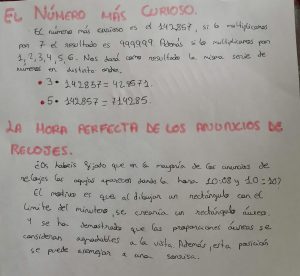 EL NÚMERO MÁS CURIOSO.
El número más curioso es el 142857, si lo multiplicamos
por 7 el resultado es 999999 Además si lo multiplicamos por
1, 2, 3, 4, 5, 6. Nos dará como resultado la misma serie de
números en distinto orden.
• 3 · 142857 = 428571.
• 5 · 142857 = 714285.
LA HORA PERFECTA DE LOS ANUNCIOS DE
RELOJES.
¿Os habéis fijado que en la mayoría de los anuncios de
relojes las agujas aparecen dando la hora 10:08 y 10:10?
El motivo es que al dibujar un rectángulo con el
límite del minutero, se crearía un rectángulo áureo.
Y se ha demostrado que las proporciones áureas se
consideran agradables a la vista. Además, esta posición
se puede asemejar a una sonrisa.